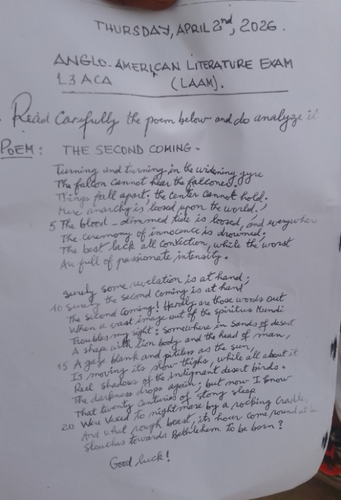 THURSDAY, APRIL 2nd, 2026.
ANGLO-AMERICAN LITERATURE EXAM
L3 ACA (LAAM).
Read carefully the poem below and do analyze it
POEM: THE SECOND COMING.
Turning and turning in the widening gyre
The falcon cannot hear the falconer,
Things fall apart; the center cannot hold.
Mere anarchy is loosed upon the world,
5 The blood-dimmed tide is loosed, and everywhere
The ceremony of innocence is drowned;
The best lack all conviction, while the worst
Are full of passionate intensity.
Surely some revelation is at hand;
10 Surely the second coming is at hand
The second coming! Hardly are those words out
When a vast image out of the Spiritus Mundi
Troubles my sight: somewhere in sands of desert
A shape with lion body and the head of man,
15 A gaze blank and pitiless as the sun,
Is moving its slow thighs, while all about it
Reel shadows of the indignant desert birds.
The darkness drops again; but now I know
That twenty centuries of stony sleep
20 Were vexed to nightmare by a rocking cradle,
And what rough beast, its hour come round at
Slouches towards Bethlehem to be born?
Good luck!